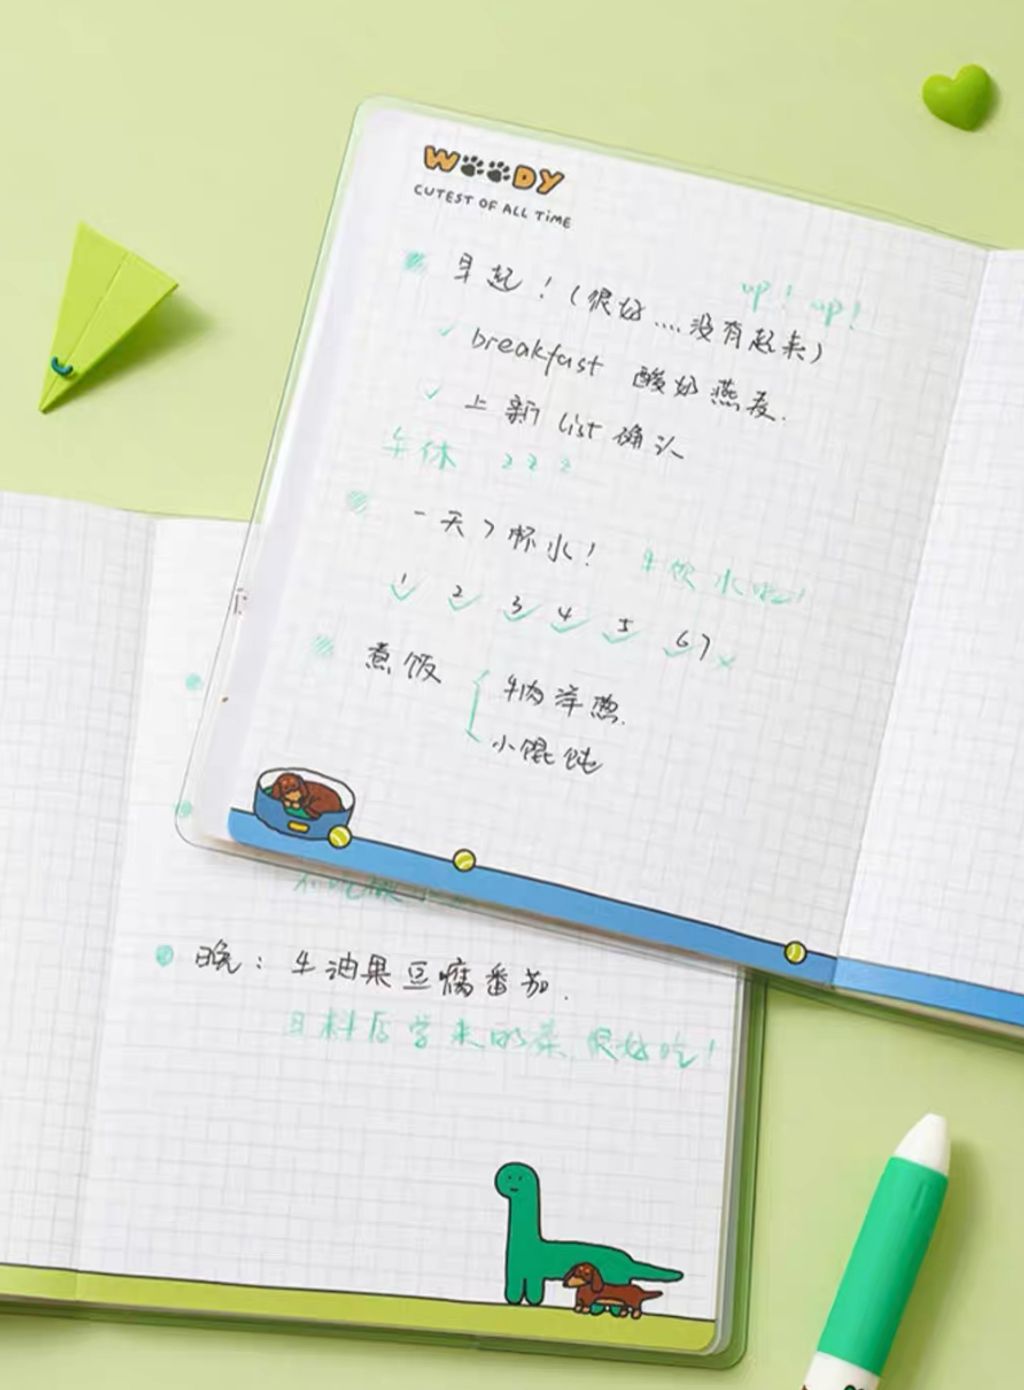 WOODY
CUTEST OF ALL TIME
up! up!
早起！（很好....没有起来）
breakfast 酸奶燕麦.
上新 list 确认
午休 z z z
一天7杯水！
水啦!
1 2 3 4 5 6 7
煮饭
牛肉洋葱.
小馄饨
晚：牛油果豆腐番茄.
日料店学来的菜，很好吃！